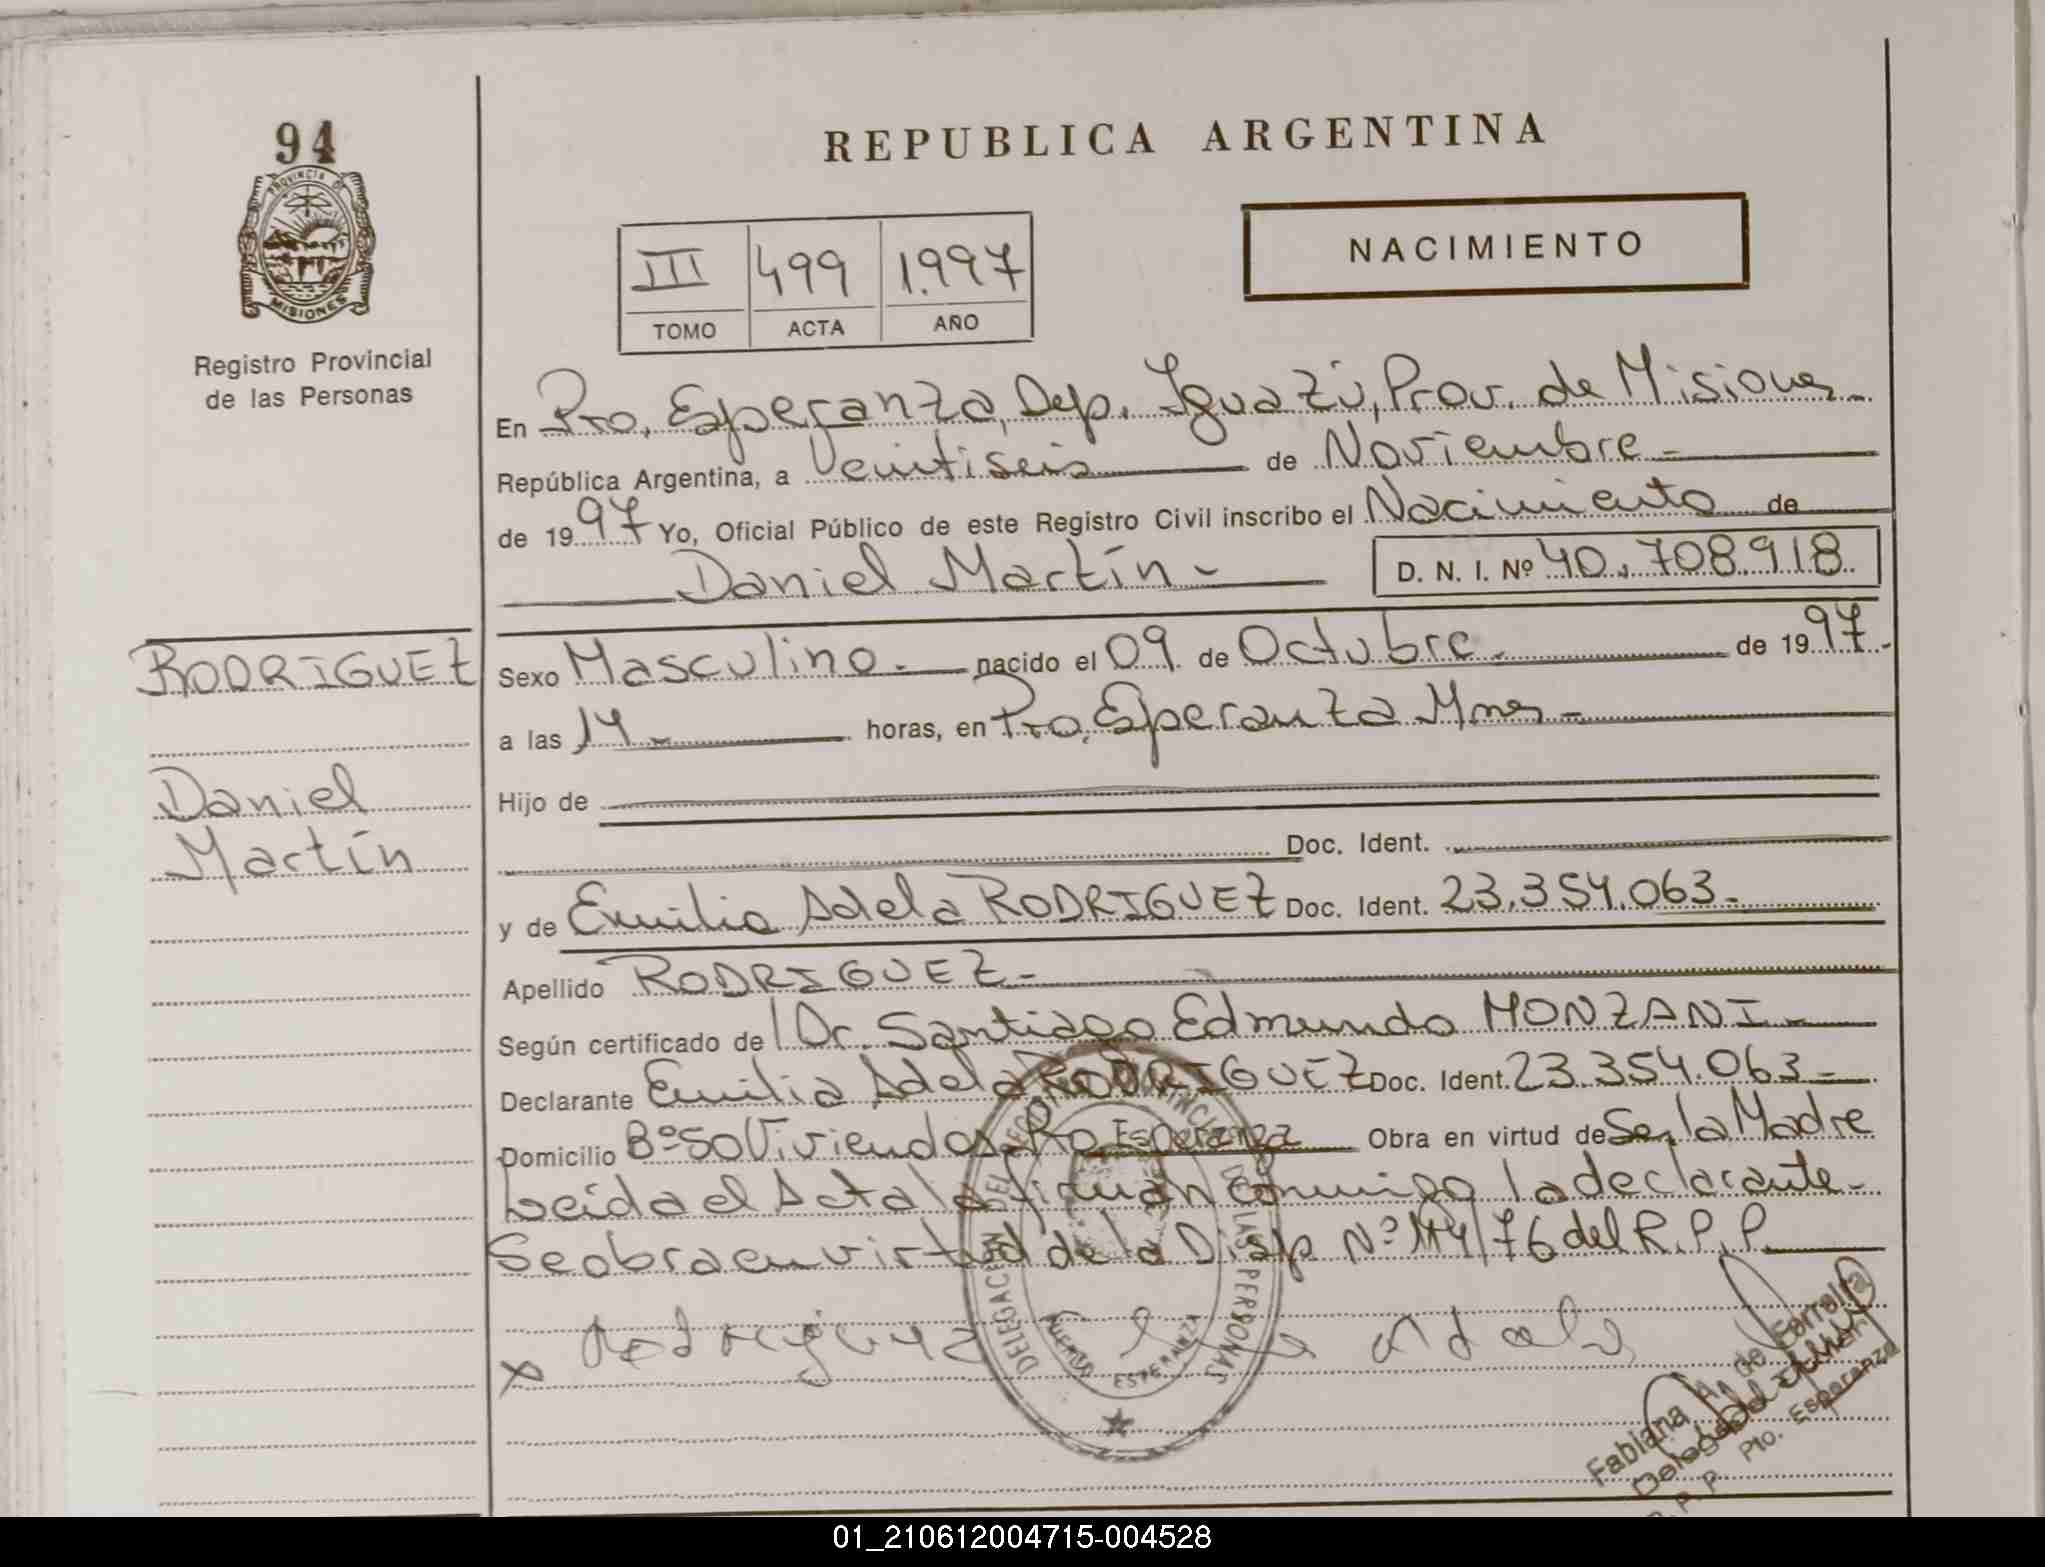 94
PROVINCIA DE
MISIONES
Registro Provincial
de las Personas
REPUBLICA ARGENTINA
NACIMIENTO
III 499 1.997
TOMO ACTA AÑO
En Pto. Esperanza, Dep. Iguazú, Prov. de Misiones.
República Argentina, a Veintiseis de Noviembre
de 1997 Yo, Oficial Público de este Registro Civil inscribo el Nacimiento de
Daniel Martín D. N. I. Nº 40.708.918
RODRIGUEZ
Daniel
Martín
Sexo Masculino nacido el 09 de Octubre de 1997
a las 14 horas, en Pto. Esperanza Mnes
Hijo de
Doc. Ident.
y de Emilia Adela RODRIGUEZ Doc. Ident. 23.354.063
Apellido RODRIGUEZ
Según certificado de Dr. Santiago Edmundo MONZANI
Declarante Emilia Adela RODRIGUEZ Doc. Ident. 23.354.063
Domicilio Bº 50 Viviendas Pto Esperanza Obra en virtud de Ser la Madre
Leída el Acta la firman conmigo la declarante
Se obra en virtud de la Disp Nº 114/76 del R.P.P.
x Rodriguez Adela
DELEGACION DEL REGISTRO PROVINCIAL DE LAS PERSONAS
PUERTO ESPERANZA
Fabiana A. de Ferreira
Delegada
R. P. P. Pto. Esperanza
01_210612004715-004528